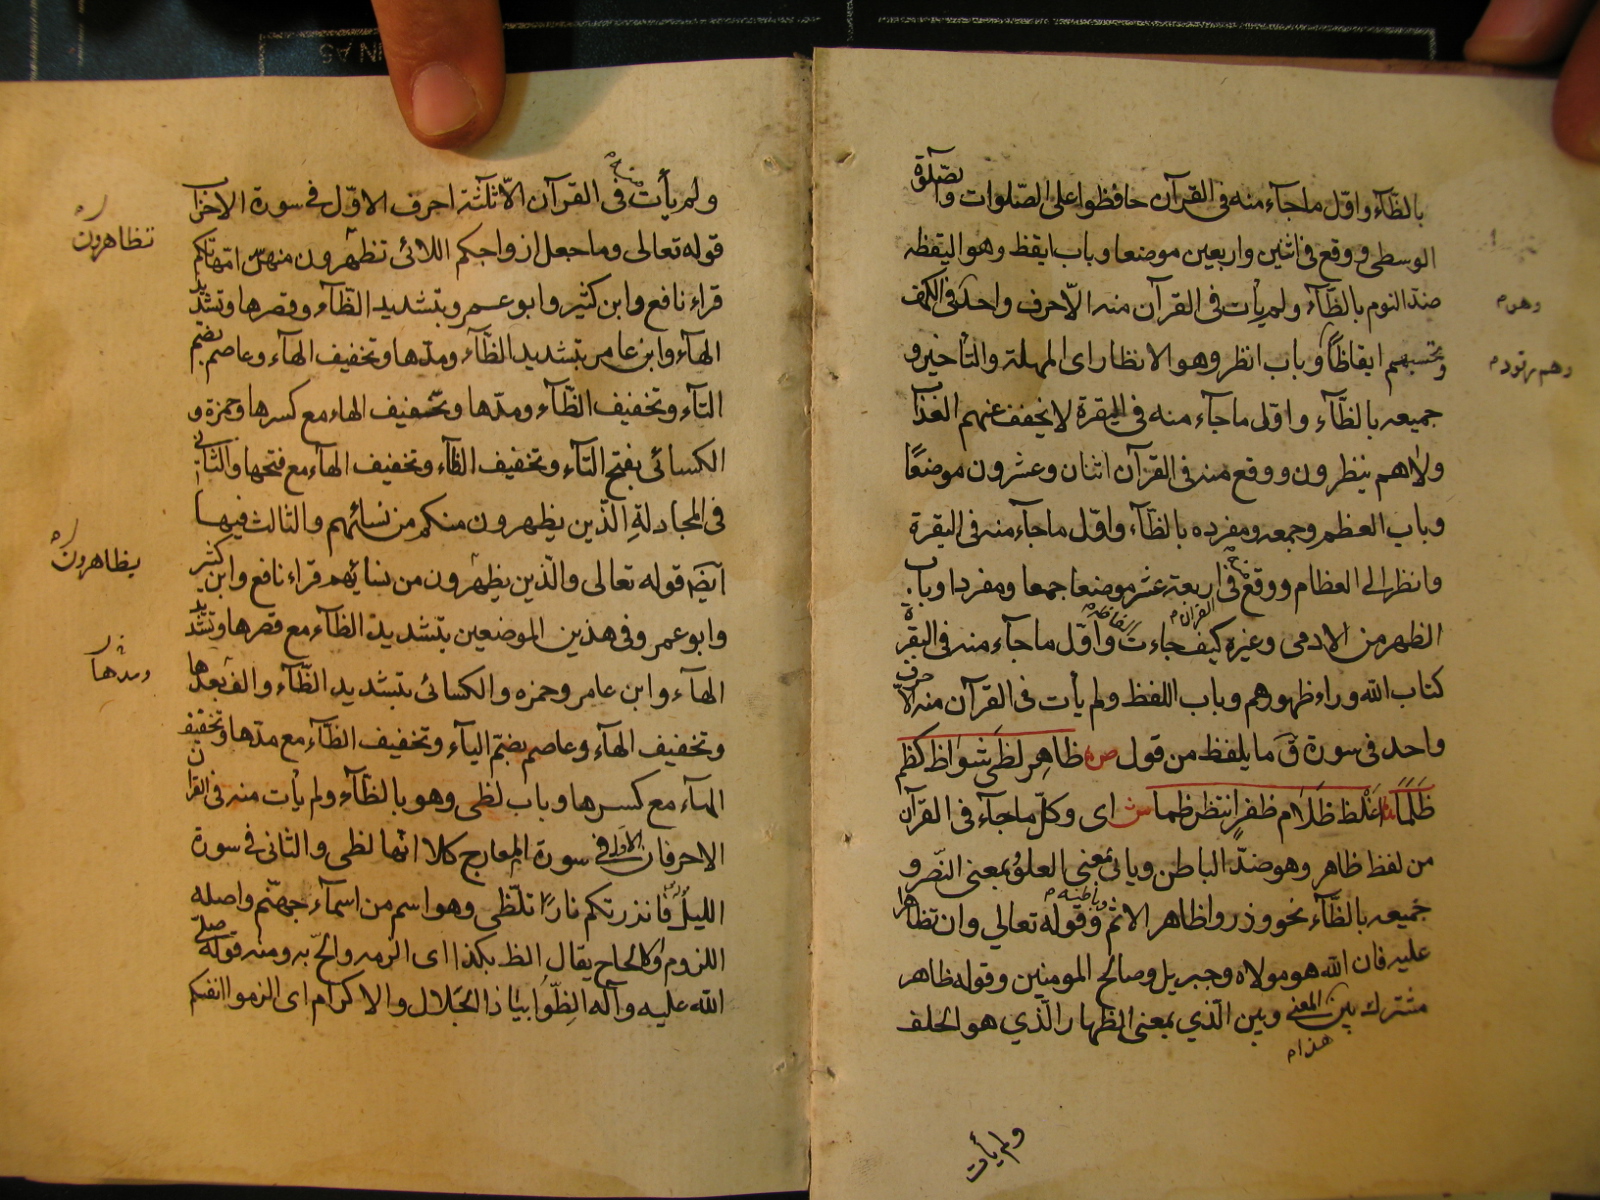 بالظآء واوّل ماجآء منه فى القرآن حافظوا على الصّلوات والصّلوة
الوسطى ووقع فى اثنين واربعين موضعا وباب ايقظ وهو اليقظه
وهو م
ضدّ النوم بالظّآء ولم يأت فى القرآن منه الّاحرف واحد فى الكهف
وهم رقود م
وتحسبهم ايقاظًا وباب انظر وهو الانظار اى المهلة والتأخير و
جميعه بالظّآء واوّل ماجآء منه فى البقرة لا يخفف عنهم العذاب
ولاهم ينظرون ووقع منه فى القرآن اثنان وعشرون موضعًا
وباب العظم وجمعه ومفرده بالظّآء واوّل ماجآء منه فى البقرة
وانظر الى العظام ووقع فى اربعة عشر موضعا جمعا ومفردا وباب
القرآن م
الظهر من الادمى وغيره كيف جاءت واوّل ماجآء منه فى البقرة
كتاب الله وراء ظهورهم وباب اللفظ ولم يأت فى القرآن منه الّا حرف
واحد فى سورة قٓ ما يلفظ من قول ص ظاهر لظى شواظ كظم
ظلما اغلظ ظلام ظفر انتظر ظما ش اى وكلّ ماجآء فى القرآن
من لفظ ظاهر وهو ضدّ الباطن وياتى بمعنى العلوّ بمعنى النّصر و
وباطنه م
جميعه بالظّآء نحو وذروا ظاهر الاثم وقوله تعالي وان تظاهرا
عليه فان الله هو مولاه وجبريل وصالح المومنين وقوله ظاهر
مشترك بين المعنى وبين الّذي بمعنى الظهار الّذي هو الحلف
هذا م
ولم يأت
ولم يأت فى القرآن الّا ثلثة احرف الاوّل فى سورة الاحزاب
تظاهرون
قوله تعالى وما جعل ازواجكم اللائى تظهرون منهنّ امّهاتكم
قراء نافع وابن كثير وابوعمر وبتشديد الظّآء وقصرها وتشديد
الهآء وابن عامر بتشديد الظّآء ومدّها وتخفيف الهآء وعاصم بضم
التآء وتخفيف الظّآء ومدّها وتخفيف الهاء مع كسرها وحمزة و
الكسائى بفتح التآء وتخفيف الظّاء وتخفيف الهآء مع فتحها والثانى
فى المجادلةِ الّذين يظهرون منكم من نسائهم والثالث فيها
يظاهرون
ايضا قوله تعالى والّذين يظهرون من نسائهم قراء نافع وابن كثير
وابوعمر وفى هذين الموضعين بتشديد الظّآء مع قصرها وتشديد
ومدّها
الهآء وابن عامر وحمزه والكسائى بتشديد الظّآء والف بعدها
وتخفيف الهآء وعاصم بضم اليآء وتخفيف الظّآء مع مدّها وتخفيف
الهآء مع كسرها وباب لظى وهو بالظّآء ولم يأت منه فى القران
الاحرفان الاوّل فى سورة المعارج كلا انها لظى والثانى فى سورة
الليل فانذرتكم نارًا تلظّى وهو اسم من اسمآء جهنّم واصله
اللزوم والالحاح يقال الظ بكذا اى الزمه والحّ به ومنه قوله صلى
الله عليه وآله الظّوا بياذا الجلال والاكرام اى الزموا انفسكم